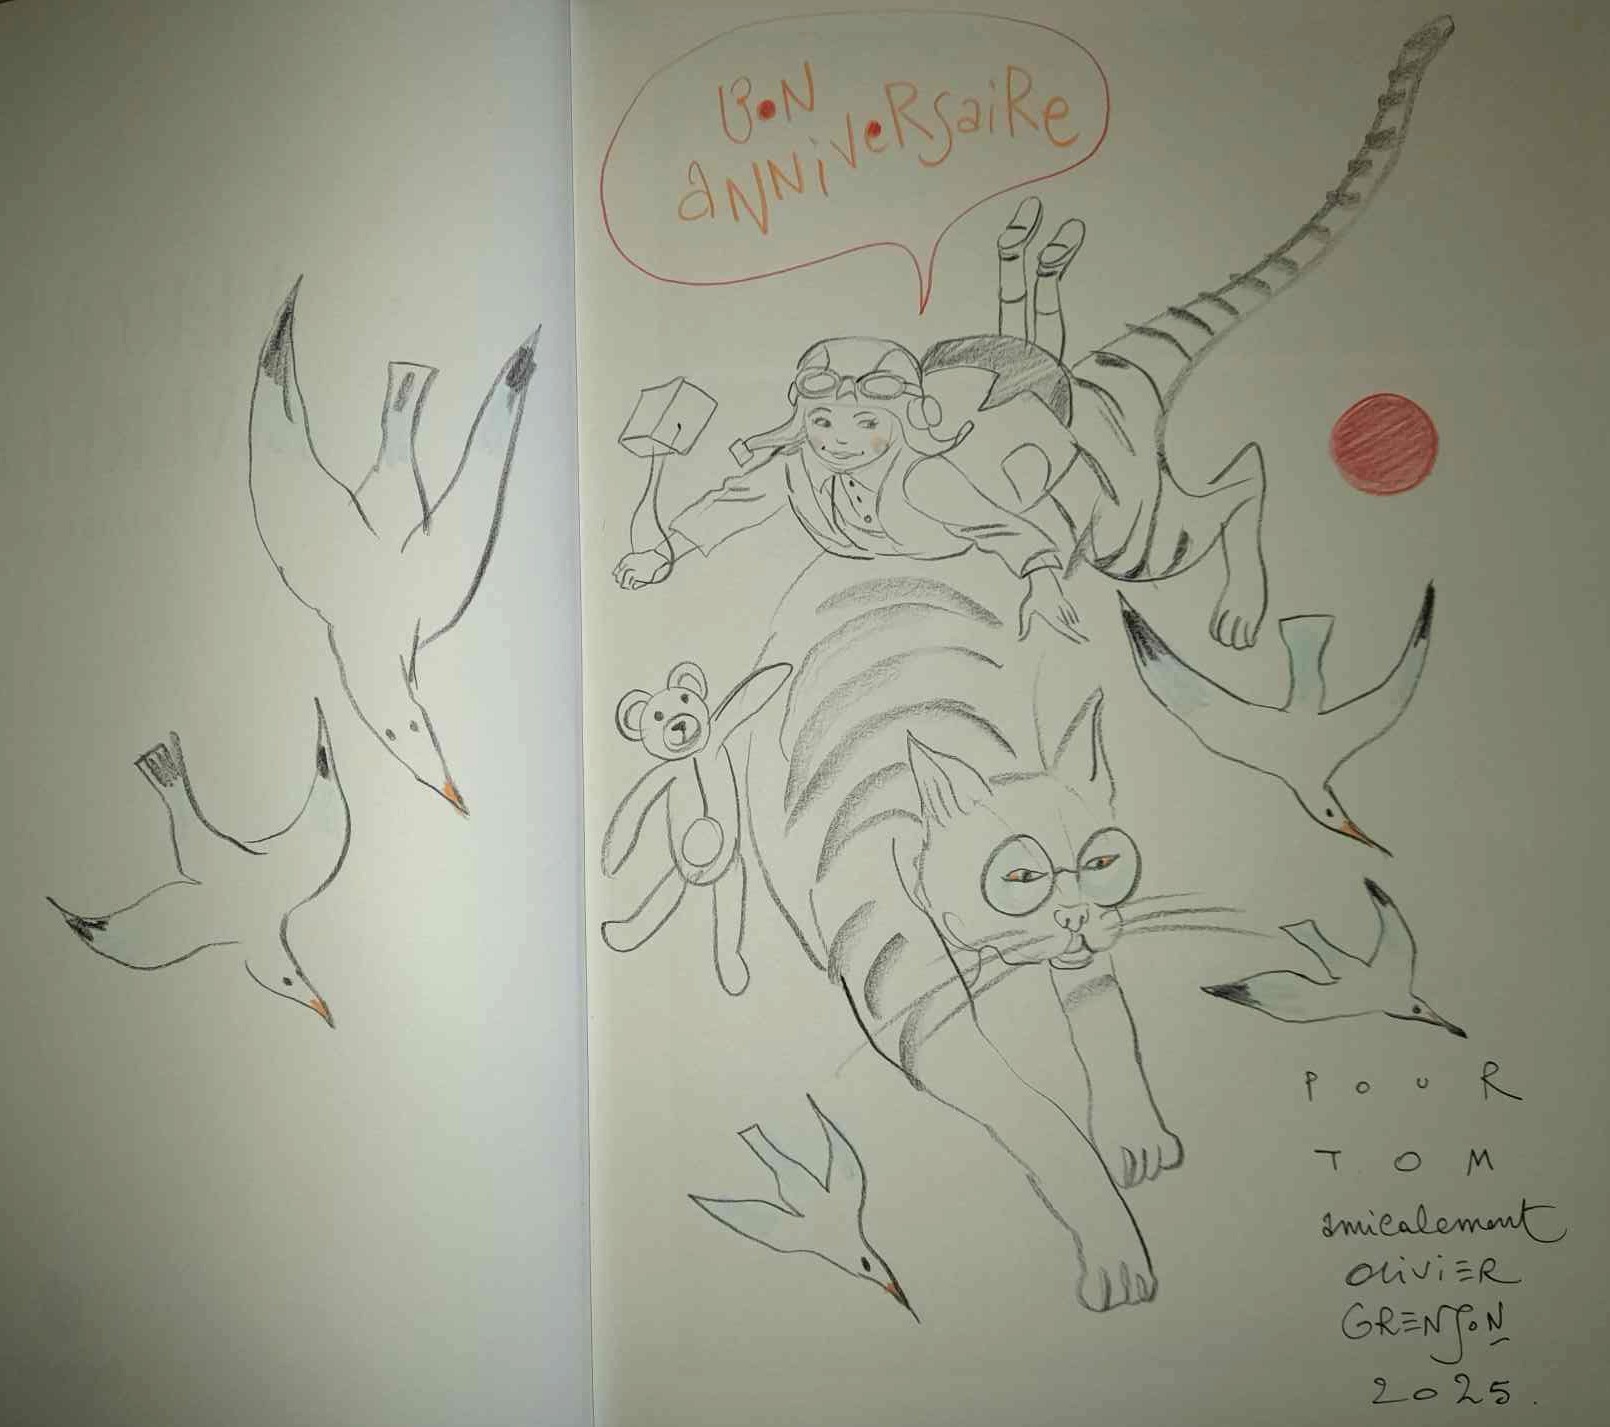 BoN
aNNiveRsaiRe
POUR
TOM
amicalement
OLIVIER
GRENSON
2025.